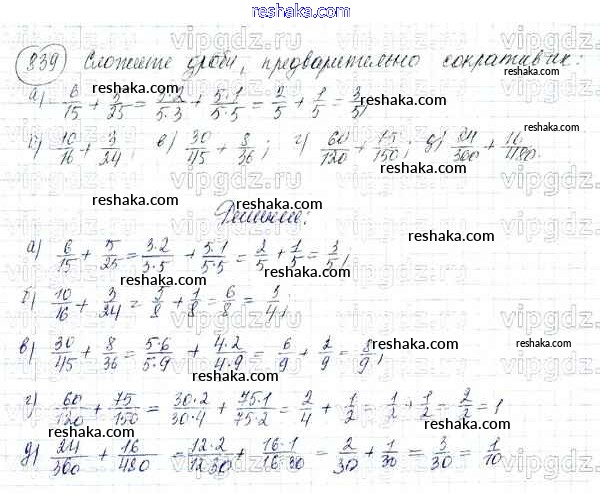 reshaka.com
839 Сложите дроби, предварительно сократив их:
а) 6/15 + 5/25 = 3·2/5·3 + 5·1/5·5 = 2/5 + 1/5 = 3/5;
б) 10/16 + 3/24; в) 30/45 + 8/36; г) 60/120 + 75/150; д) 24/360 + 16/480.
Решение:
а) 6/15 + 5/25 = 3·2/3·5 + 5·1/5·5 = 2/5 + 1/5 = 3/5;
б) 10/16 + 3/24 = 5/8 + 1/8 = 6/8 = 3/4;
в) 30/45 + 8/36 = 5·6/5·9 + 4·2/4·9 = 6/9 + 2/9 = 8/9;
г) 60/120 + 75/150 = 30·2/30·4 + 75·1/75·2 = 2/4 + 1/2 = 1/2 + 1/2 = 2/2 = 1
д) 24/360 + 16/480 = 12·2/12·30 + 16·1/16·30 = 2/30 + 1/30 = 3/30 = 1/10